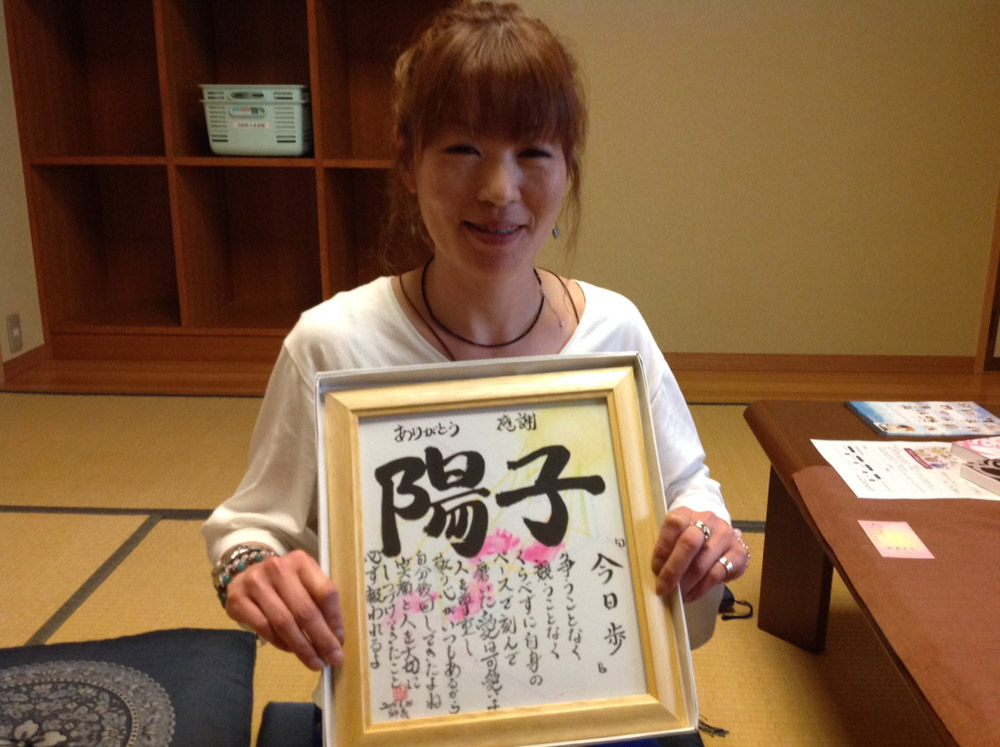 ありがとう
感謝
陽子
「今日歩」
争うことなく
競うことなく
くらべずに自身の
ペースで刻んで
磨いた愛は
人を尊重し
敬う心がいつもあるから
自分後回ししてきたよね
笑顔と人を大切に
しつづけてきたこと
必ず報われるよ